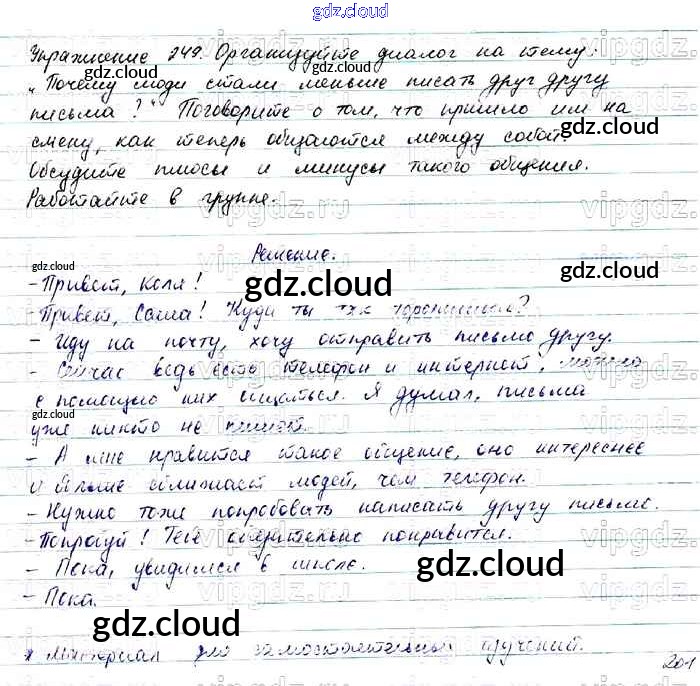 gdz.cloud
Упражнение 249. Организуйте диалог на тему:
„Почему люди стали меньше писать друг другу
письма?" Поговорите о том, что пришло им на
смену, как теперь общаются между собой.
Обсудите плюсы и минусы такого общения.
Работайте в группе.
Решение.
- Привет, Коля!
- Привет, Саша! Куда ты так торопишься?
- Иду на почту, хочу отправить письмо другу.
- Сейчас ведь есть телефон и интернет, можно
с помощью них общаться. Я думал, письма
уже никто не пишет.
- А мне нравится такое общение, оно интереснее
и больше сближает людей, чем телефон.
- Нужно тоже попробовать написать другу письмо.
- Попробуй! Тебе обязательно понравится.
- Пока, увидимся в школе.
- Пока.
* Материал для самостоятельных изучений.
201